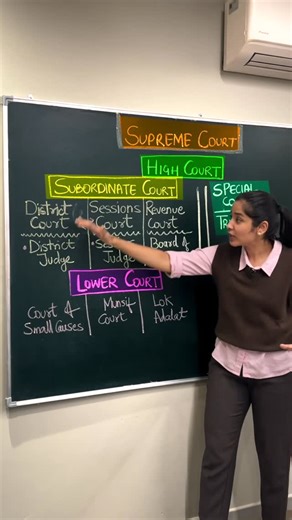 SUPREME COURT
HIGH COURT
SUBORDINATE COURT
SPECIAL
District Court
• District Judge
Sessions Court
Judge
Revenue Court
Board of
LOWER COURT
Court of Small Causes
Munsif Court
Lok Adalat